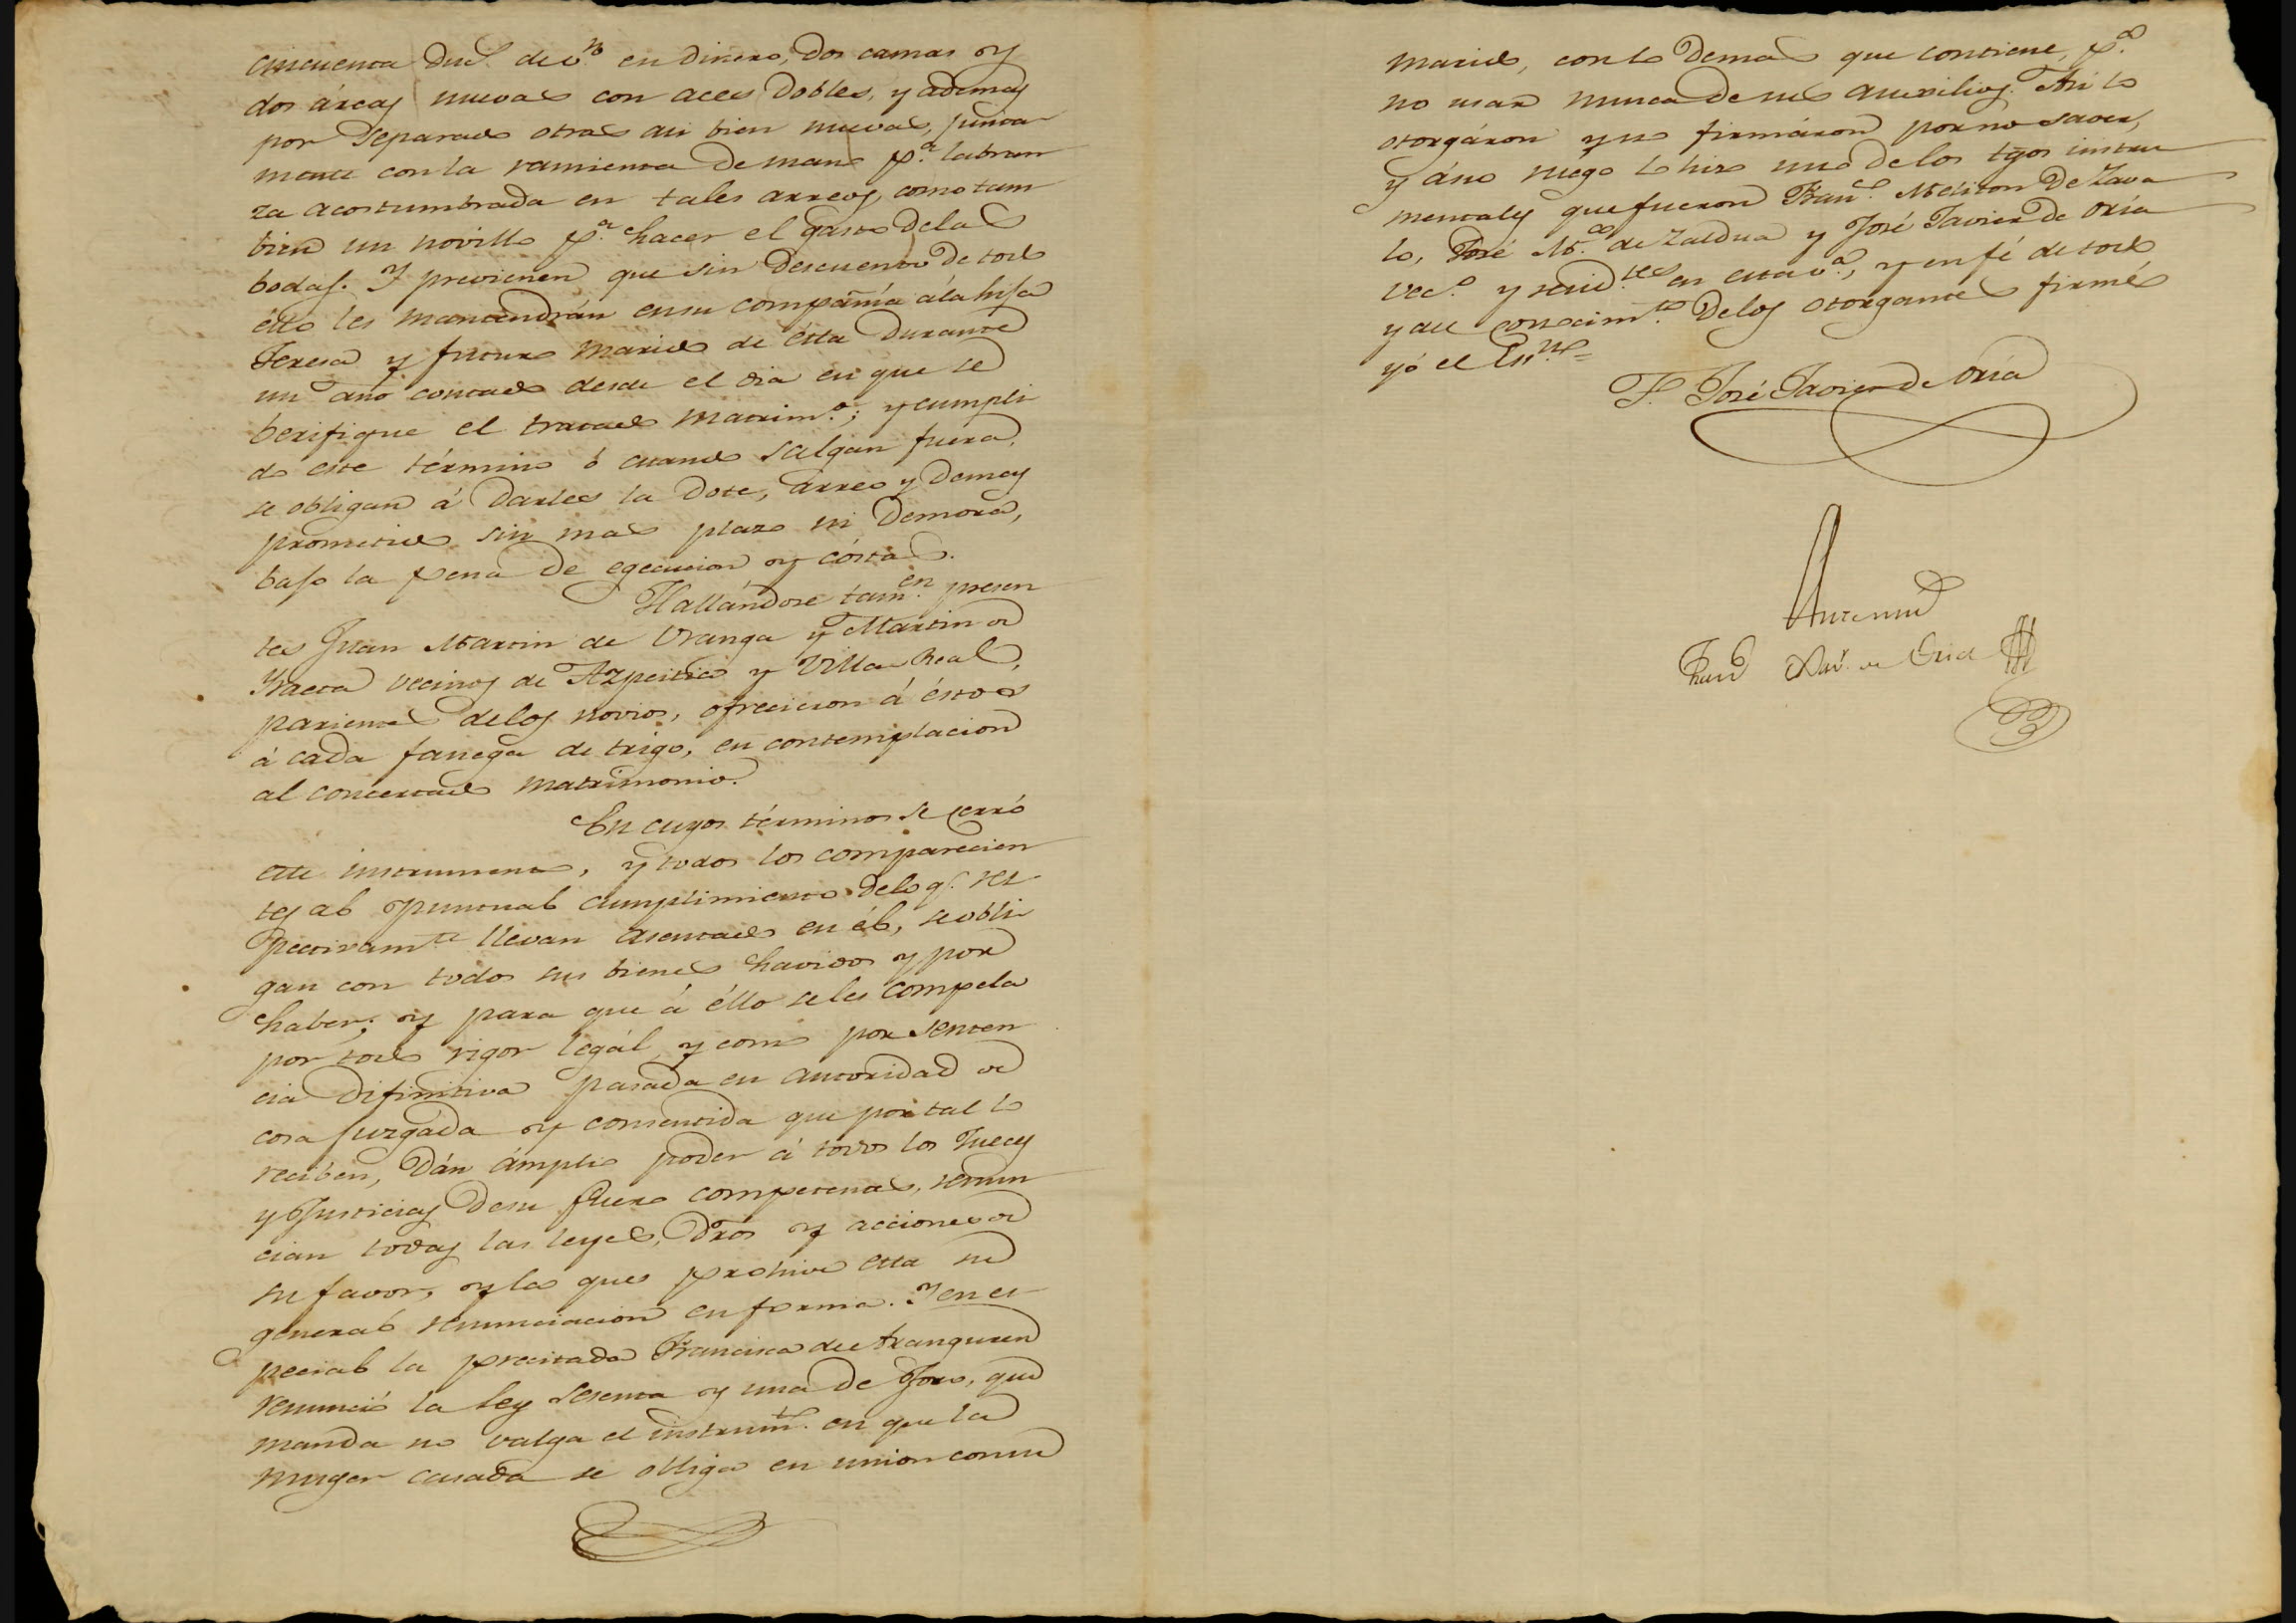 cincuenta duc.s de v.n en dinero, dos camas y
dos árcas nuevas con aces dobles, y ademas
por separado otras asi bien nuevas, junta
mente con la ramienta de mano p.a labran
za acostumbrada en tales arreos, como tam
bien un novillo p.a hacer el gasto de las
bodas. Y previenen que sin descuento de todo
ésto les mantendrán en su compañía á la hija
Teresa y futuro marido de ésta durante
un año contado desde el dia en que se
berifique el tratado matrim.o; y cumpli
do este término ó cuando salgan fuera,
se obligan á darles la dote, arreo y demas
prometido sin mas plazo ni demora,
bajo la pena de egecucion y cóstas.
Hallándose tam.en presen
tes Juan Martin de Uranga y Martin de
Yraeta vecinos de Azpeitia y Villa Real,
parientes de los novios, ofrecieron á éstos
á cada fanega de trigo, en contemplacion
al concertado matrimonio.
En cuyos términos se cerró
este instrumento, y todos los comparecien
tes al puntual cumplimiento de lo q.e res
pectivam.te llevan asentado en él, se obli
gan con todos sus bienes havidos y por
haber; y para que á éllo se les compela
por todo rigor legál y como por senten
cia difinitiva pasada en autoridad de
cosa juzgada y consentida que por tal lo
reciben, dán ámplio poder á todos los Jueces
y Justicias de su fuero competentes, renun
cian todas las leyes, dros y acciones de
su favor, y la que prohive esta su
general renunciacion en forma. Y en es
pecial la precitada Francisca de Aranguren
renunció la ley sesenta y una de Toro, que
manda no valga el instrum.to en que la
muger casada se obliga en union con su
marido, con lo demas que contiene, p.a
no usar nunca de sus auxilios. Asi lo
otorgáron y no firmáron por no saver,
y á su ruego lo hizo uno de los tgos instru
mentales que fueron Fran.co Meliton de Zava
lo, José M.a de Zaldua y José Javier de Oria
vec.s y resid.tes en esta v.a, y en fé de todo
y del conocim.to de los otorgantes firmé
yó el Esn.o =
T. José Javier de Oria
Ante mi
Fran.co Xav.r de Oria